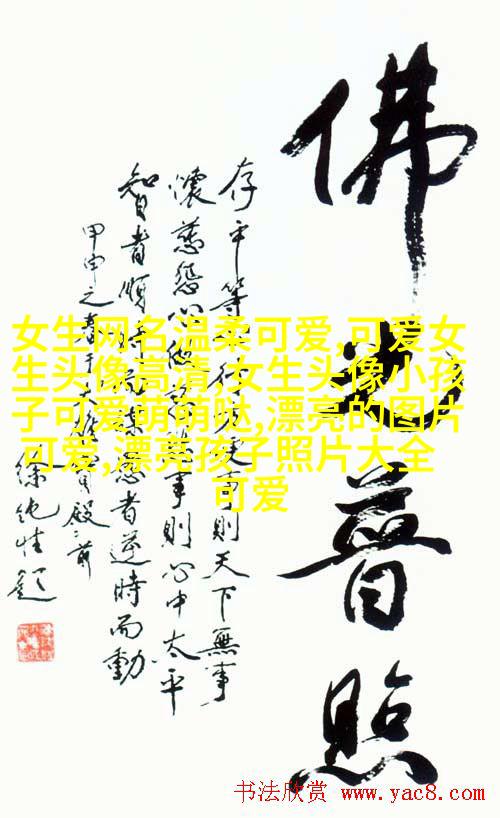 佛光普照
存平等心行方便事則天下無事
懷慈悲心做慈悲事則心中太平
智者順時而謀愚者逆時而動
甲申之春于大雄寶殿之前
徐純
女生网名温柔可爱,可爱女
生头像高清,女生头像小孩
子可爱萌萌哒,漂亮的图片
可爱,漂亮孩子照片大全
可爱
书法欣赏 www.yac8.com